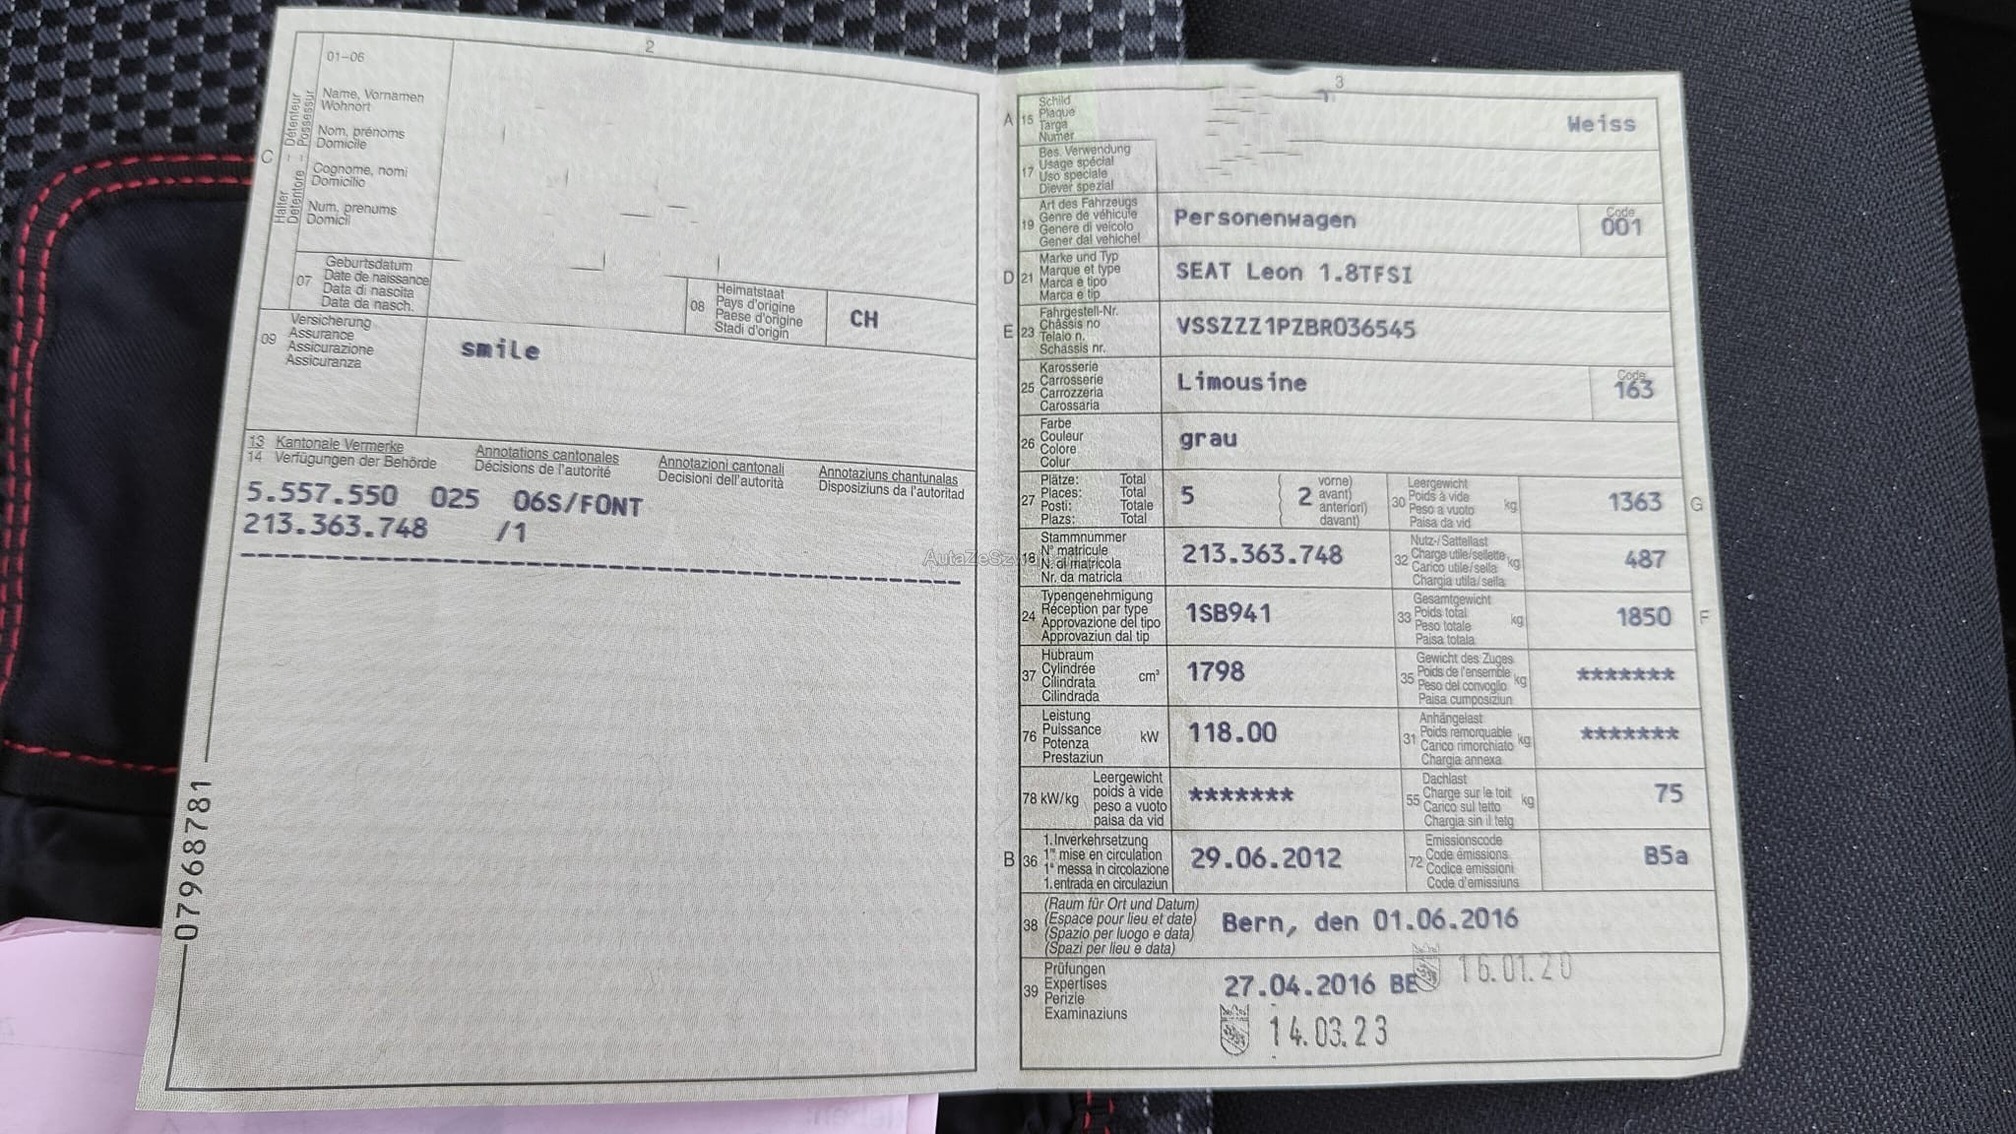 2
01-06
C
Halter – Détenteur
Detentore – Possessur
Name, Vornamen
Wohnort
Nom, prénoms
Domicile
Cognome, nomi
Domicilio
Num, prenums
Domicil
07
Geburtsdatum
Date de naissance
Data di nascita
Data da nasch.
08
Heimatstaat
Pays d'origine
Paese d'origine
Stadi d'origin
CH
09
Versicherung
Assurance
Assicurazione
Assicuranza
smile
13 Kantonale Vermerke Annotations cantonales Annotazioni cantonali Annotaziuns chantunalas
14 Verfügungen der Behörde Décisions de l'autorité Decisioni dell'autorità Disposiziuns da l'autoritad
5.557.550 025 06S/FONT
213.363.748 /1
07968781
AutaZeSzw
3
A 15
Schild
Plaque
Targa
Numer
Weiss
17
Bes. Verwendung
Usage spécial
Uso speciale
Diever spezial
19
Art des Fahrzeugs
Genre de véhicule
Genere di veicolo
Gener dal vehichel
Personenwagen
Code
001
D 21
Marke und Typ
Marque et type
Marca e tipo
Marca e tip
SEAT Leon 1.8TFSI
E 23
Fahrgestell-Nr.
Châssis no
Telaio n.
Schassis nr.
VSSZZZ1PZBR036545
25
Karosserie
Carrosserie
Carrozzeria
Carossaria
Limousine
Code
163
26
Farbe
Couleur
Colore
Colur
grau
27
Plätze: Total
Places: Total
Posti: Totale
Plazs: Total
5
2
vorne)
avant)
anteriori)
davant)
30
Leergewicht
Poids à vide
Peso a vuoto
Paisa da vid
kg
1363
G
18
Stammnummer
N° matricule
N. di matricola
Nr. da matricla
213.363.748
32
Nutz-/Sattellast
Charge utile/sellette
Carico utile/sella
Chargia utila/sella
kg
487
24
Typengenehmigung
Réception par type
Approvazione del tipo
Approvaziun dal tip
1SB941
33
Gesamtgewicht
Poids total
Peso totale
Paisa totala
kg
1850
F
37
Hubraum
Cylindrée
Cilindrata
Cilindrada
cm³
1798
35
Gewicht des Zuges
Poids de l'ensemble
Peso del convoglio
Paisa cumposiziun
kg
*******
76
Leistung
Puissance
Potenza
Prestaziun
kW
118.00
31
Anhängelast
Poids remorquable
Carico rimorchiato
Chargia annexa
kg
*******
78 kW/kg
Leergewicht
poids à vide
peso a vuoto
paisa da vid
*******
55
Dachlast
Charge sur le toit
Carico sul tetto
Chargia sin il tetg
kg
75
B 36
1.Inverkehrsetzung
1re mise en circulation
1a messa in circolazione
1.entrada en circulaziun
29.06.2012
72
Emissionscode
Code émissions
Codice emissioni
Code d'emissiuns
B5a
38
(Raum für Ort und Datum)
(Espace pour lieu et date)
(Spazio per luogo e data)
(Spazi per lieu e data)
Bern, den 01.06.2016
39
Prüfungen
Expertises
Perizie
Examinaziuns
27.04.2016 BE
16.01.20
14.03.23